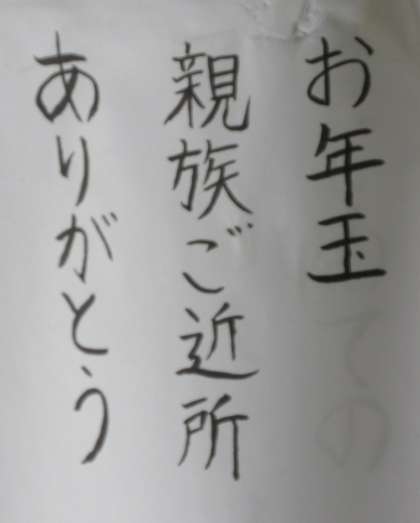 お年玉
親族ご近所
ありがとう